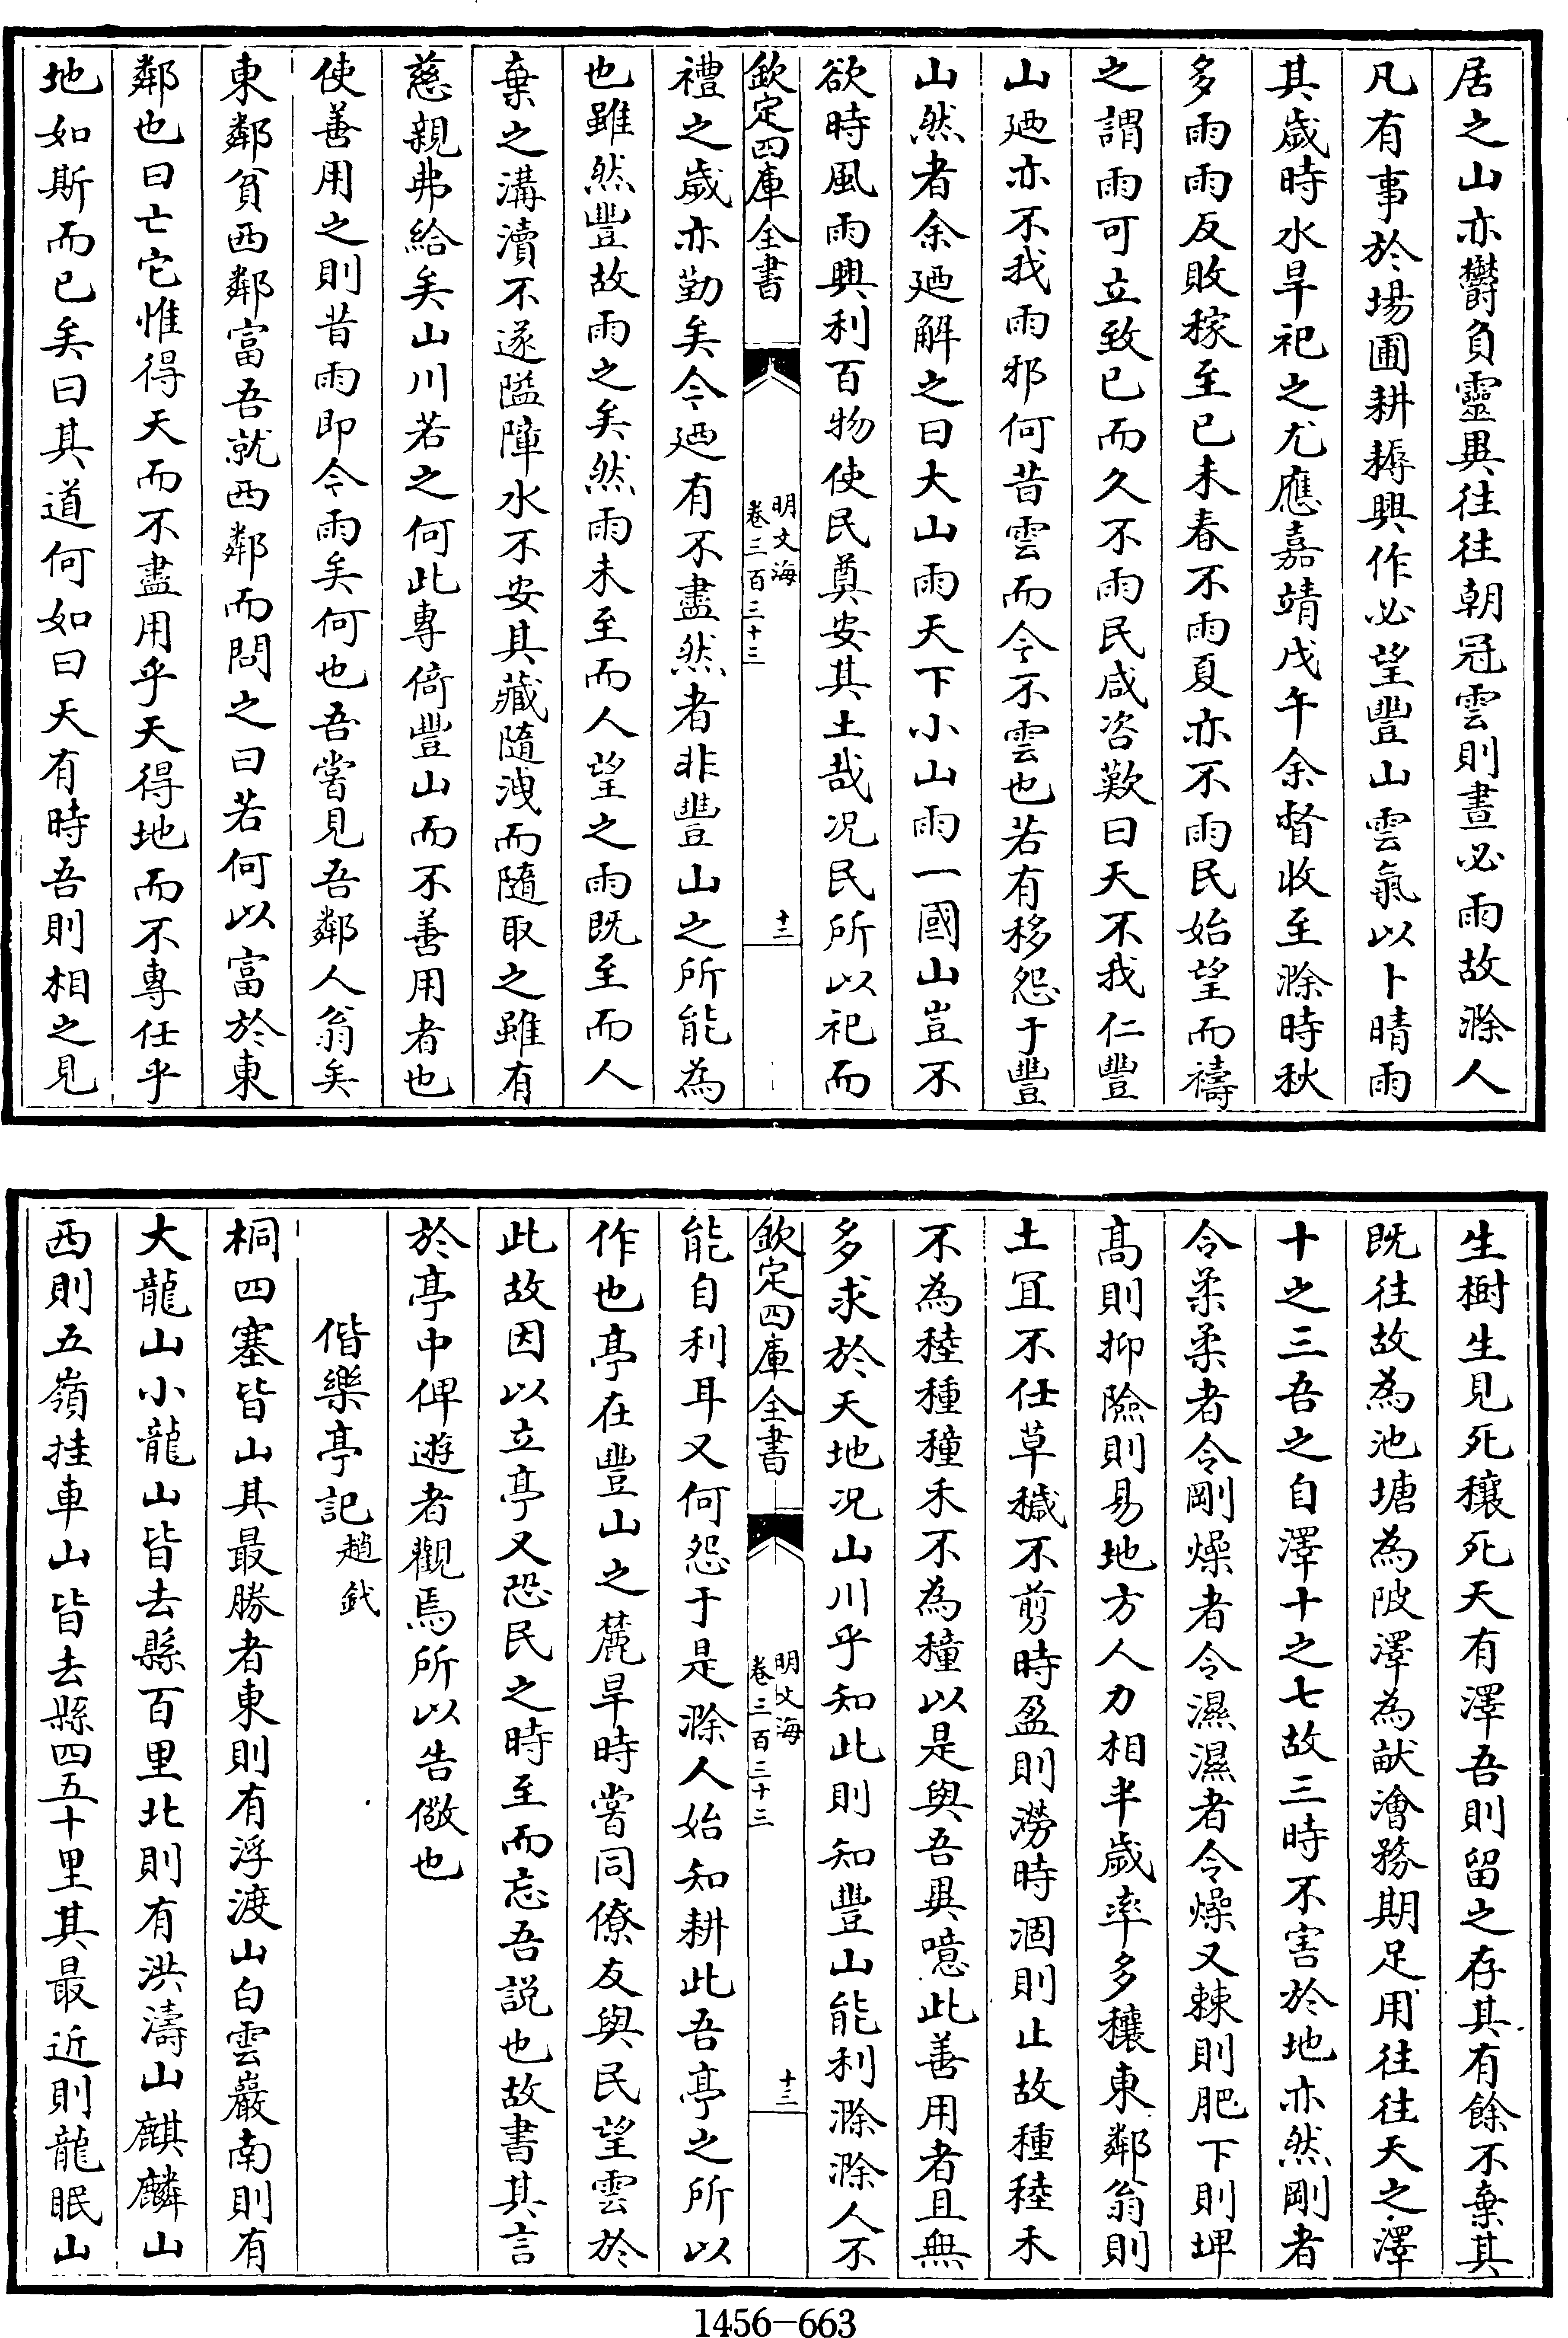 居之山亦欝負靈異往往朝冠雲則晝必雨故滁人
凡有事於場圃耕耨興作必望豐山雲氣以卜晴雨
其歲時水旱祀之尤應嘉靖戊午余督收至滁時秋
多雨雨反敗稼至已未春不雨夏亦不雨民始望而禱
之謂雨可立致已而久不雨民咸咨歎曰天不我仁豐
山廼亦不我雨邪何昔雲而今不雲也若有移怨于豐
山然者余廼解之曰大山雨天下小山雨一國山豈不
欲時風雨興利百物使民奠安其土哉况民所以祀而
欽定四庫全書
明文海
卷三百三十三
十二
禮之歲亦勤矣今廼有不盡然者非豐山之所能為
也雖然豐故雨之矣然雨未至而人望之雨既至而人
棄之溝瀆不遂隘障水不安其藏隨洩而隨取之雖有
慈親弗給矣山川若之何此專倚豐山而不善用者也
使善用之則昔雨即今雨矣何也吾嘗見吾鄰人翁矣
東鄰貧西鄰富吾就西鄰而問之曰若何以富於東
鄰也曰亡它惟得天而不盡用乎天得地而不專任乎
地如斯而已矣曰其道何如曰天有時吾則相之見
生樹生見死穰死天有澤吾則留之存其有餘不棄其
既往故為池塘為陂澤為畎澮務期足用往往天之澤
十之三吾之自澤十之七故三時不害於地亦然剛者
令柔柔者令剛燥者令濕濕者令燥又棘則肥下則埤
高則抑險則易地方人力相半歲率多穰東鄰翁則
土冝不任草穢不剪時盈則澇時涸則止故種稑禾
不為稑種穜禾不為穜以是與吾異噫此善用者且無
多求於天地况山川乎知此則知豐山能利滁滁人不
欽定四庫全書
明文海
卷三百三十三
十三
能自利耳又何怨于是滁人始知耕此吾亭之所以
作也亭在豐山之麓旱時嘗同僚友與民望雲於
此故因以立亭又恐民之時至而忘吾説也故書其言
於亭中俾遊者觀焉所以告儆也
偕樂亭記趙釴
桐四塞皆山其最勝者東則有浮渡山白雲巖南則有
大龍山小龍山皆去縣百里北則有洪濤山麒麟山
西則五嶺挂車山皆去縣四五十里其最近則龍眠山
1456-663